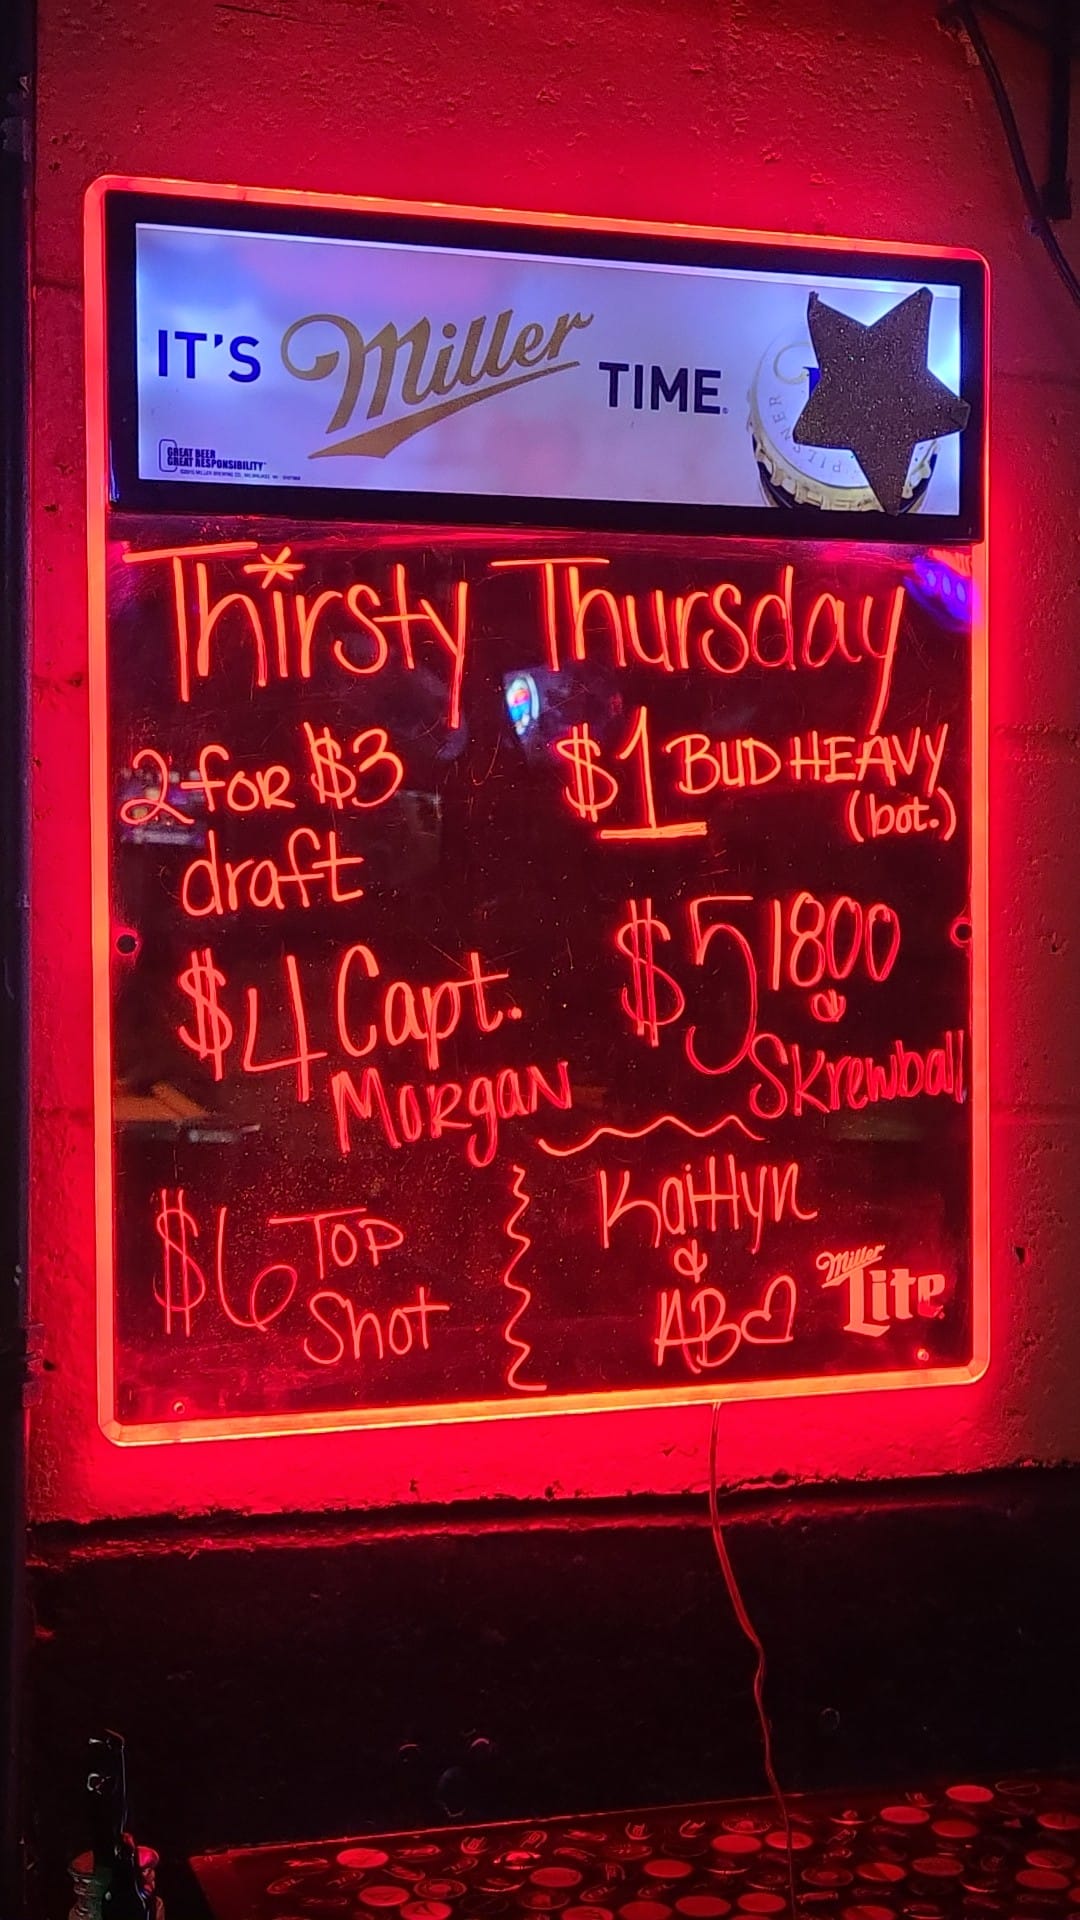 IT'S Miller TIME
GREAT BEER
GREAT RESPONSIBILITY
Thirsty Thursday
2 for $3
draft
$1 BUD HEAVY
(bot.)
$4 Capt.
Morgan
$5 1800
&
Skrewball
$6 Top
Shot
Kaitlyn
&
AB
Miller
Lite